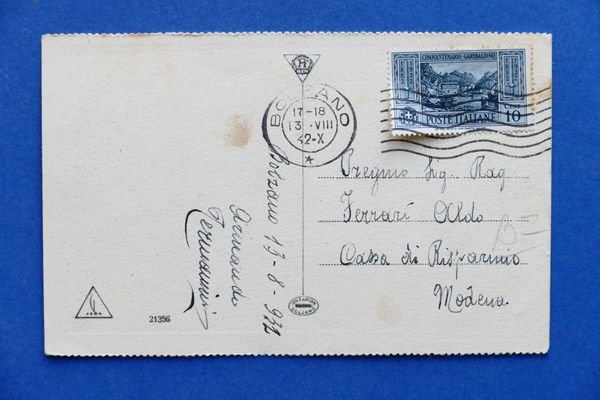 CINQVANTENARIO GARIBALDINO
CENT 10
POSTE ITALIANE
BOLZANO
17-18
13 VIII
32-X
Bolzano 13-8-932
Armando
Pregmo Sig. Rag.
Ferrari Aldo
Cassa di Risparmio
Modena
21356
BOLZANO